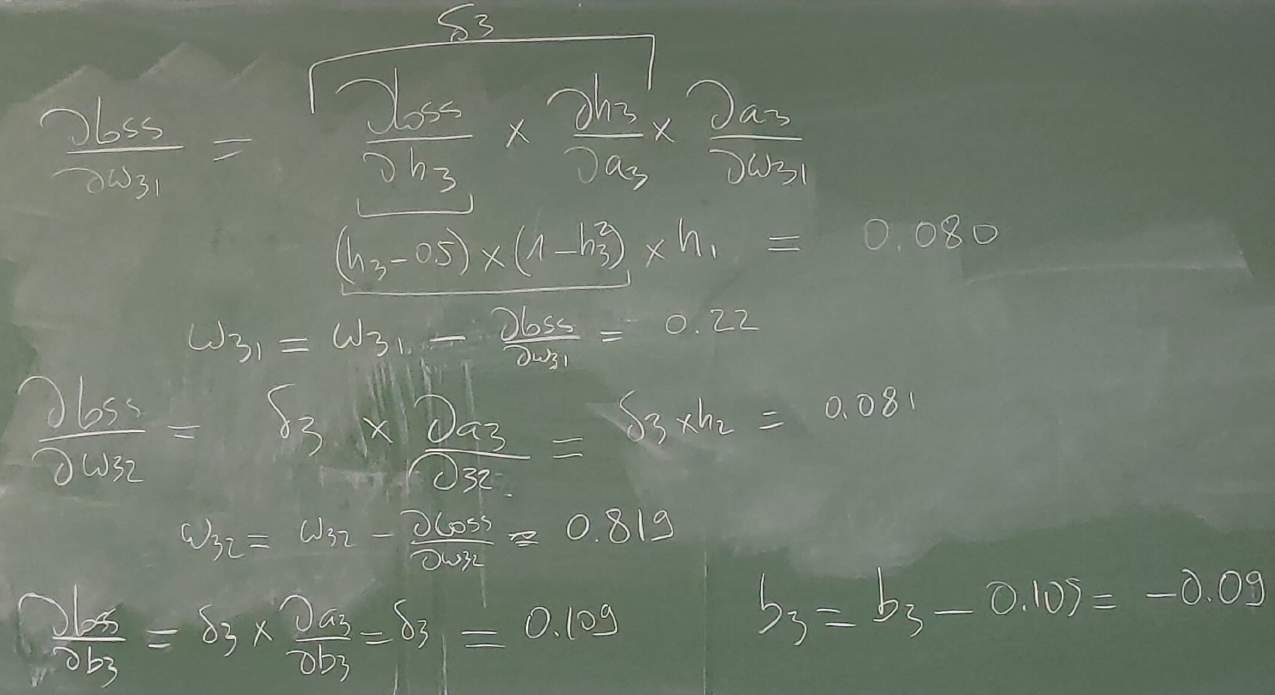 δ3
∂loss/∂w31 = ∂loss/∂h3 × ∂h3/∂a3 × ∂a3/∂w31
(h3-0.5) × (1-h3²) × h1 = 0.080
w31 = w31 - ∂loss/∂w31 = 0.22
∂loss/∂w32 = δ3 × ∂a3/∂32 = δ3 × h2 = 0.081
w32 = w32 - ∂loss/∂w32 ≈ 0.819
∂loss/∂b3 = δ3 × ∂a3/∂b3 = δ3 = 0.109
b3 = b3 - 0.109 = -0.09